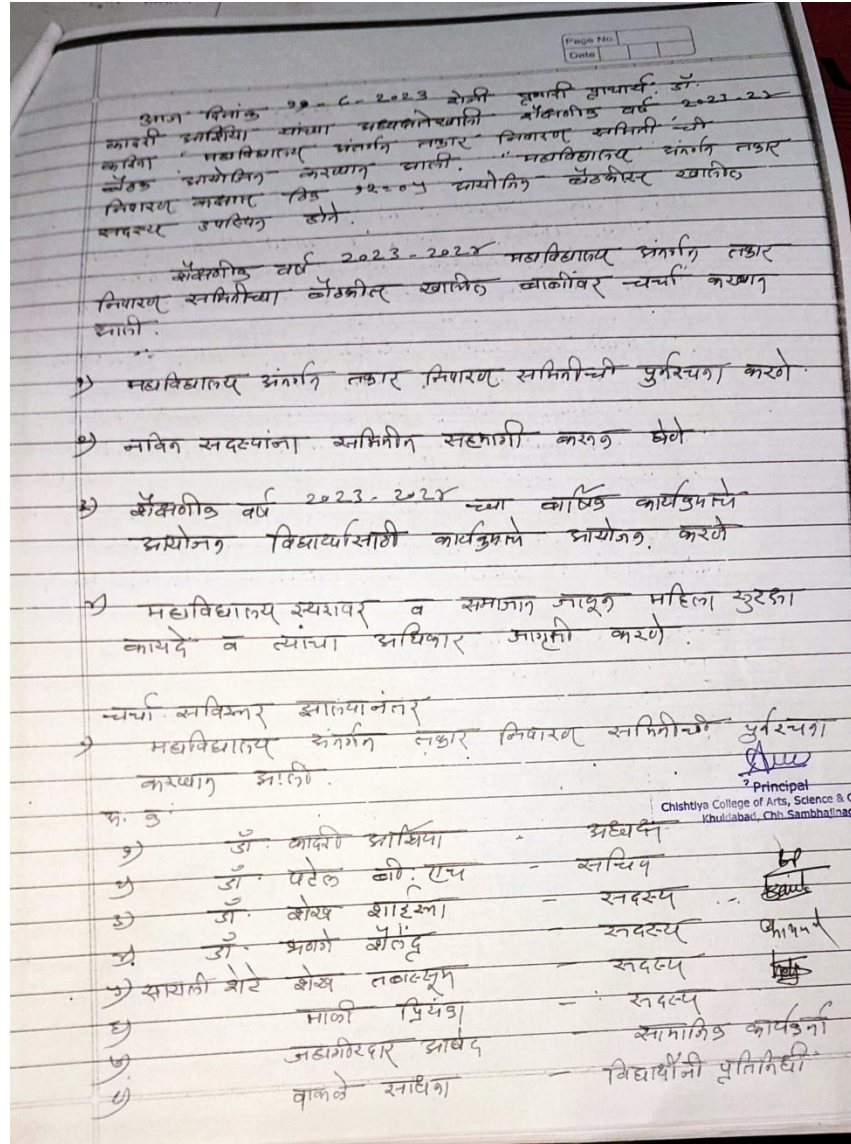 Page No.
Date
आज दिनांक ११-८-2023 रोजी प्रभारी प्राचार्य. डॉ.
कादरी आशिया यांच्या अध्यक्षतेखाली शैक्षणीक वर्ष 2023-2४
करिता "महाविद्यालय अंतर्गत तक्रार निवारण समिती ची
बैठक आयोजित करण्यात आली. "महाविद्यालय अंतर्गत तक्रार
निवारण १२=०५ आयोजित बैठकीस खालील
सदस्य उपस्थित होते.
शैक्षणीक वर्ष 2023-202४ महाविद्यालय अंतर्गत तक्रार
निवारण समितीच्या बैठकीत खालील बाबींवर चर्चा करण्यात
आली.
१) महाविद्यालय अंतर्गत तक्रार निवारण समितीची पुर्नरचना करणे.
२) नविन सदस्यांना समितीत सहभागी करून घेणे
३) शैक्षणीक वर्ष 2023-202४ च्या वार्षिक कार्यक्रमाचे
आयोजन विद्यार्थ्यांसाठी कार्यक्रमाचे आयोजन करणे
४) महाविद्यालय स्तरावर व समाजात जाऊन महिला सुरक्षा
कायदे व त्यांचा अधिकार जागृती करणे.
चर्चा सविस्तर झाल्यानंतर
१) महाविद्यालय अंतर्गत तक्रार निवारण समितीची पुर्नरचना
करण्यात आली.
Principal
Chishtiya College of Arts, Science & C
Khuldabad, Chh Sambhajinag
अ. क्र
१) डॉ. कादरी आशिया - अध्यक्ष
२) डॉ. पटेल बी. एच - सचिव
३) डॉ. शेख शाईस्ता - सदस्य
४) डॉ. भणगे शैलेंद्र - सदस्य
५) सायली शेटे शेख तबस्सूम - सदस्य
६) माळी प्रियंका - सदस्य
७) जहागीरदार आबेद - सामाजिक कार्यकर्ता
८) वाकळे साधना - विद्यार्थीनी प्रतिनिधी